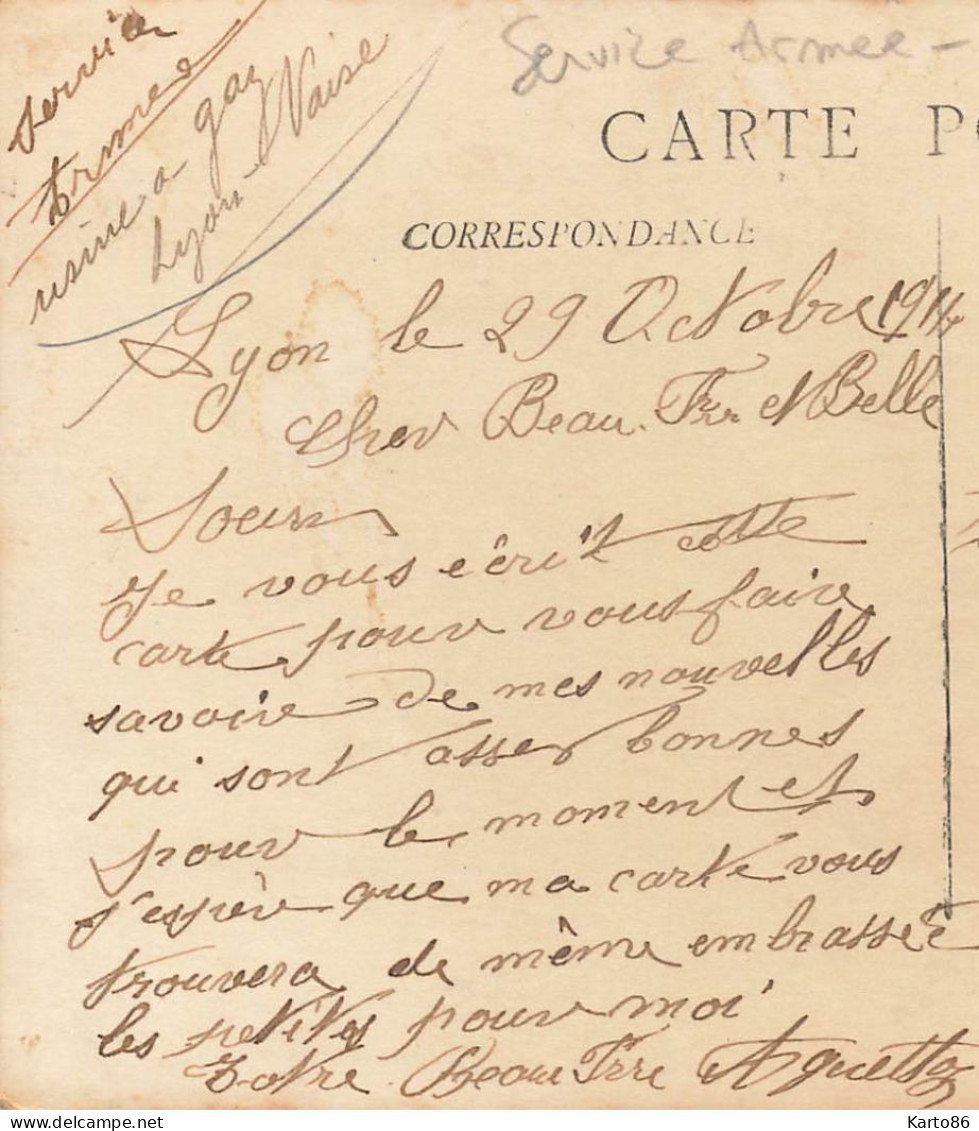 Service Armée -
Service
Armée
usine a gaz
Lyon Vaise
CARTE PO
CORRESPONDANCE
Lyon le 29 Octobre 1914
Cher Beau Frr et Belle
Soeur
Je vous ècrit cette
carte pour vous faire
savoire de mes nouvelles
qui sont asser bonnes
pour le moment et
j'espère que ma carte vous
trouvera de même embrasser
les petites pour moi
Votre Beau Frre
Karto86